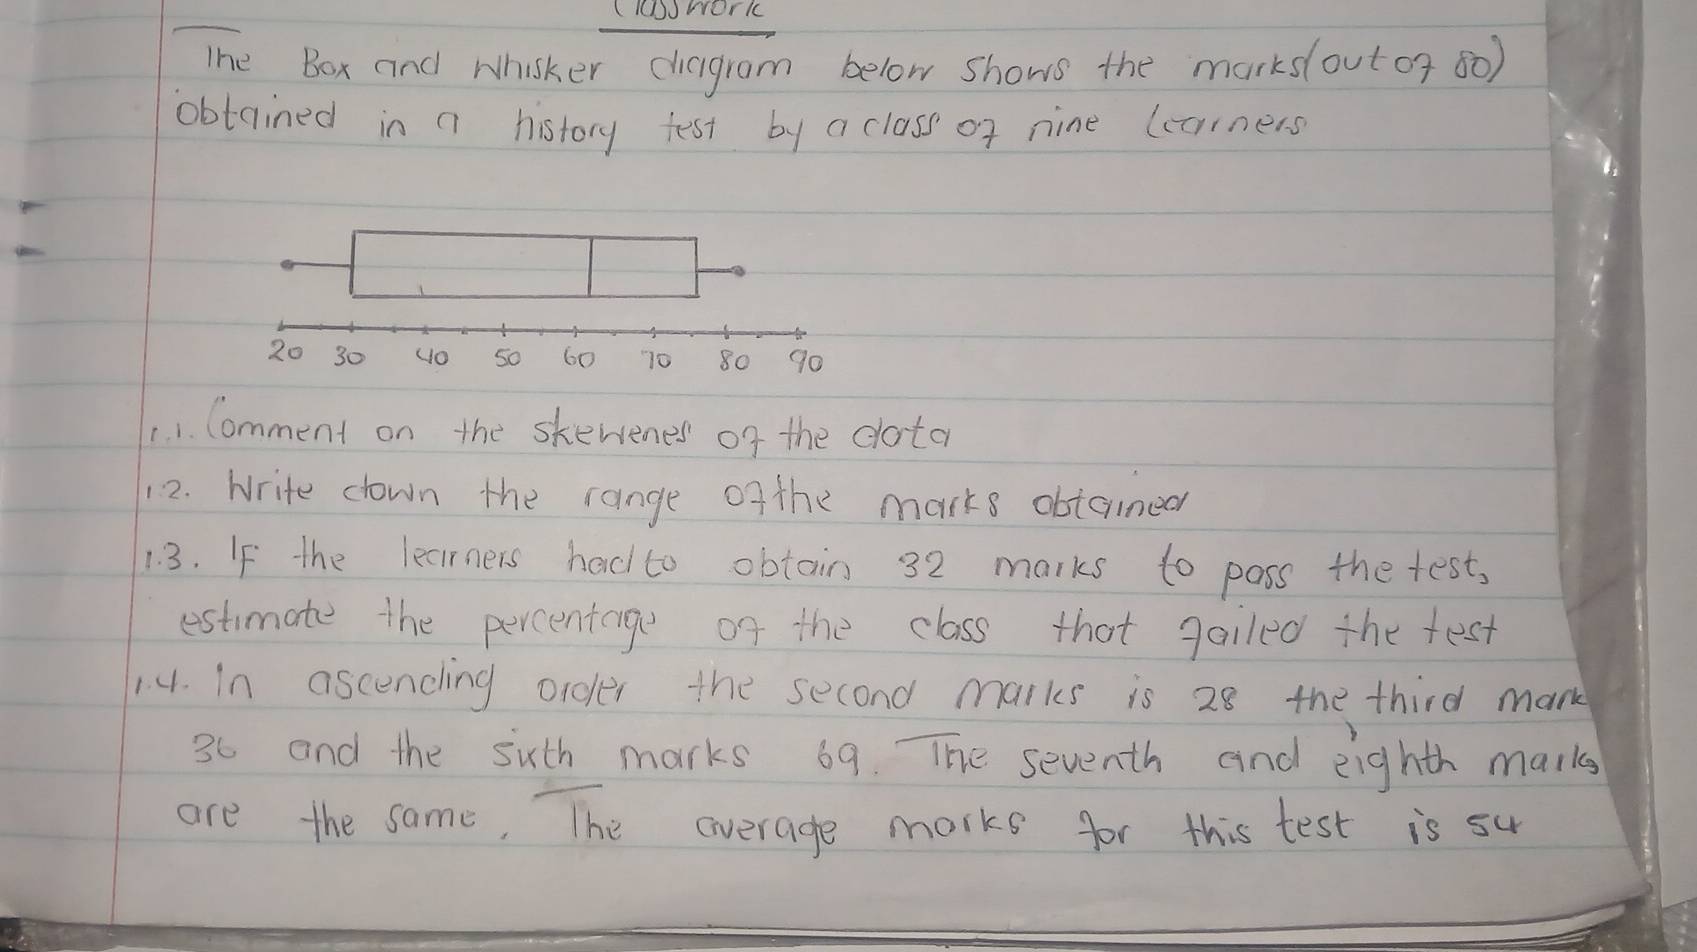 Classwork
The Box and Whisker diagram below shows the marks(out of 80)
obtained in a history test by a class of nine learners
20 30 40 50 60 70 80 90
1.1. Comment on the skewenes of the data
1.2. Write down the range of the marks obtained
1.3. If the learners had to obtain 32 marks to pass the test,
estimate the percentage of the class that failed the test
1.4. In ascending order the second marks is 28 the third mark
36 and the sixth marks 69. The seventh and eighth marks
are the same. The average marks for this test is 54